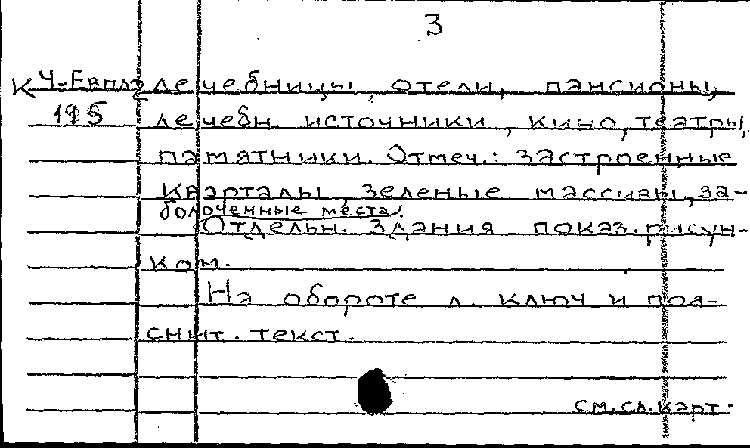 3
К Ч-Евпл2 лечебницы, отели, пансионы,
195 лечебн. источники, кино, театры,
памятники. Отмеч.: застроенные
кварталы, зеленые массивы, за-
болоченные места.
Отдельн. здания показ. рисун-
ком.
На обороте л. ключ и поя-
снит. текст.
см.сл.карт.